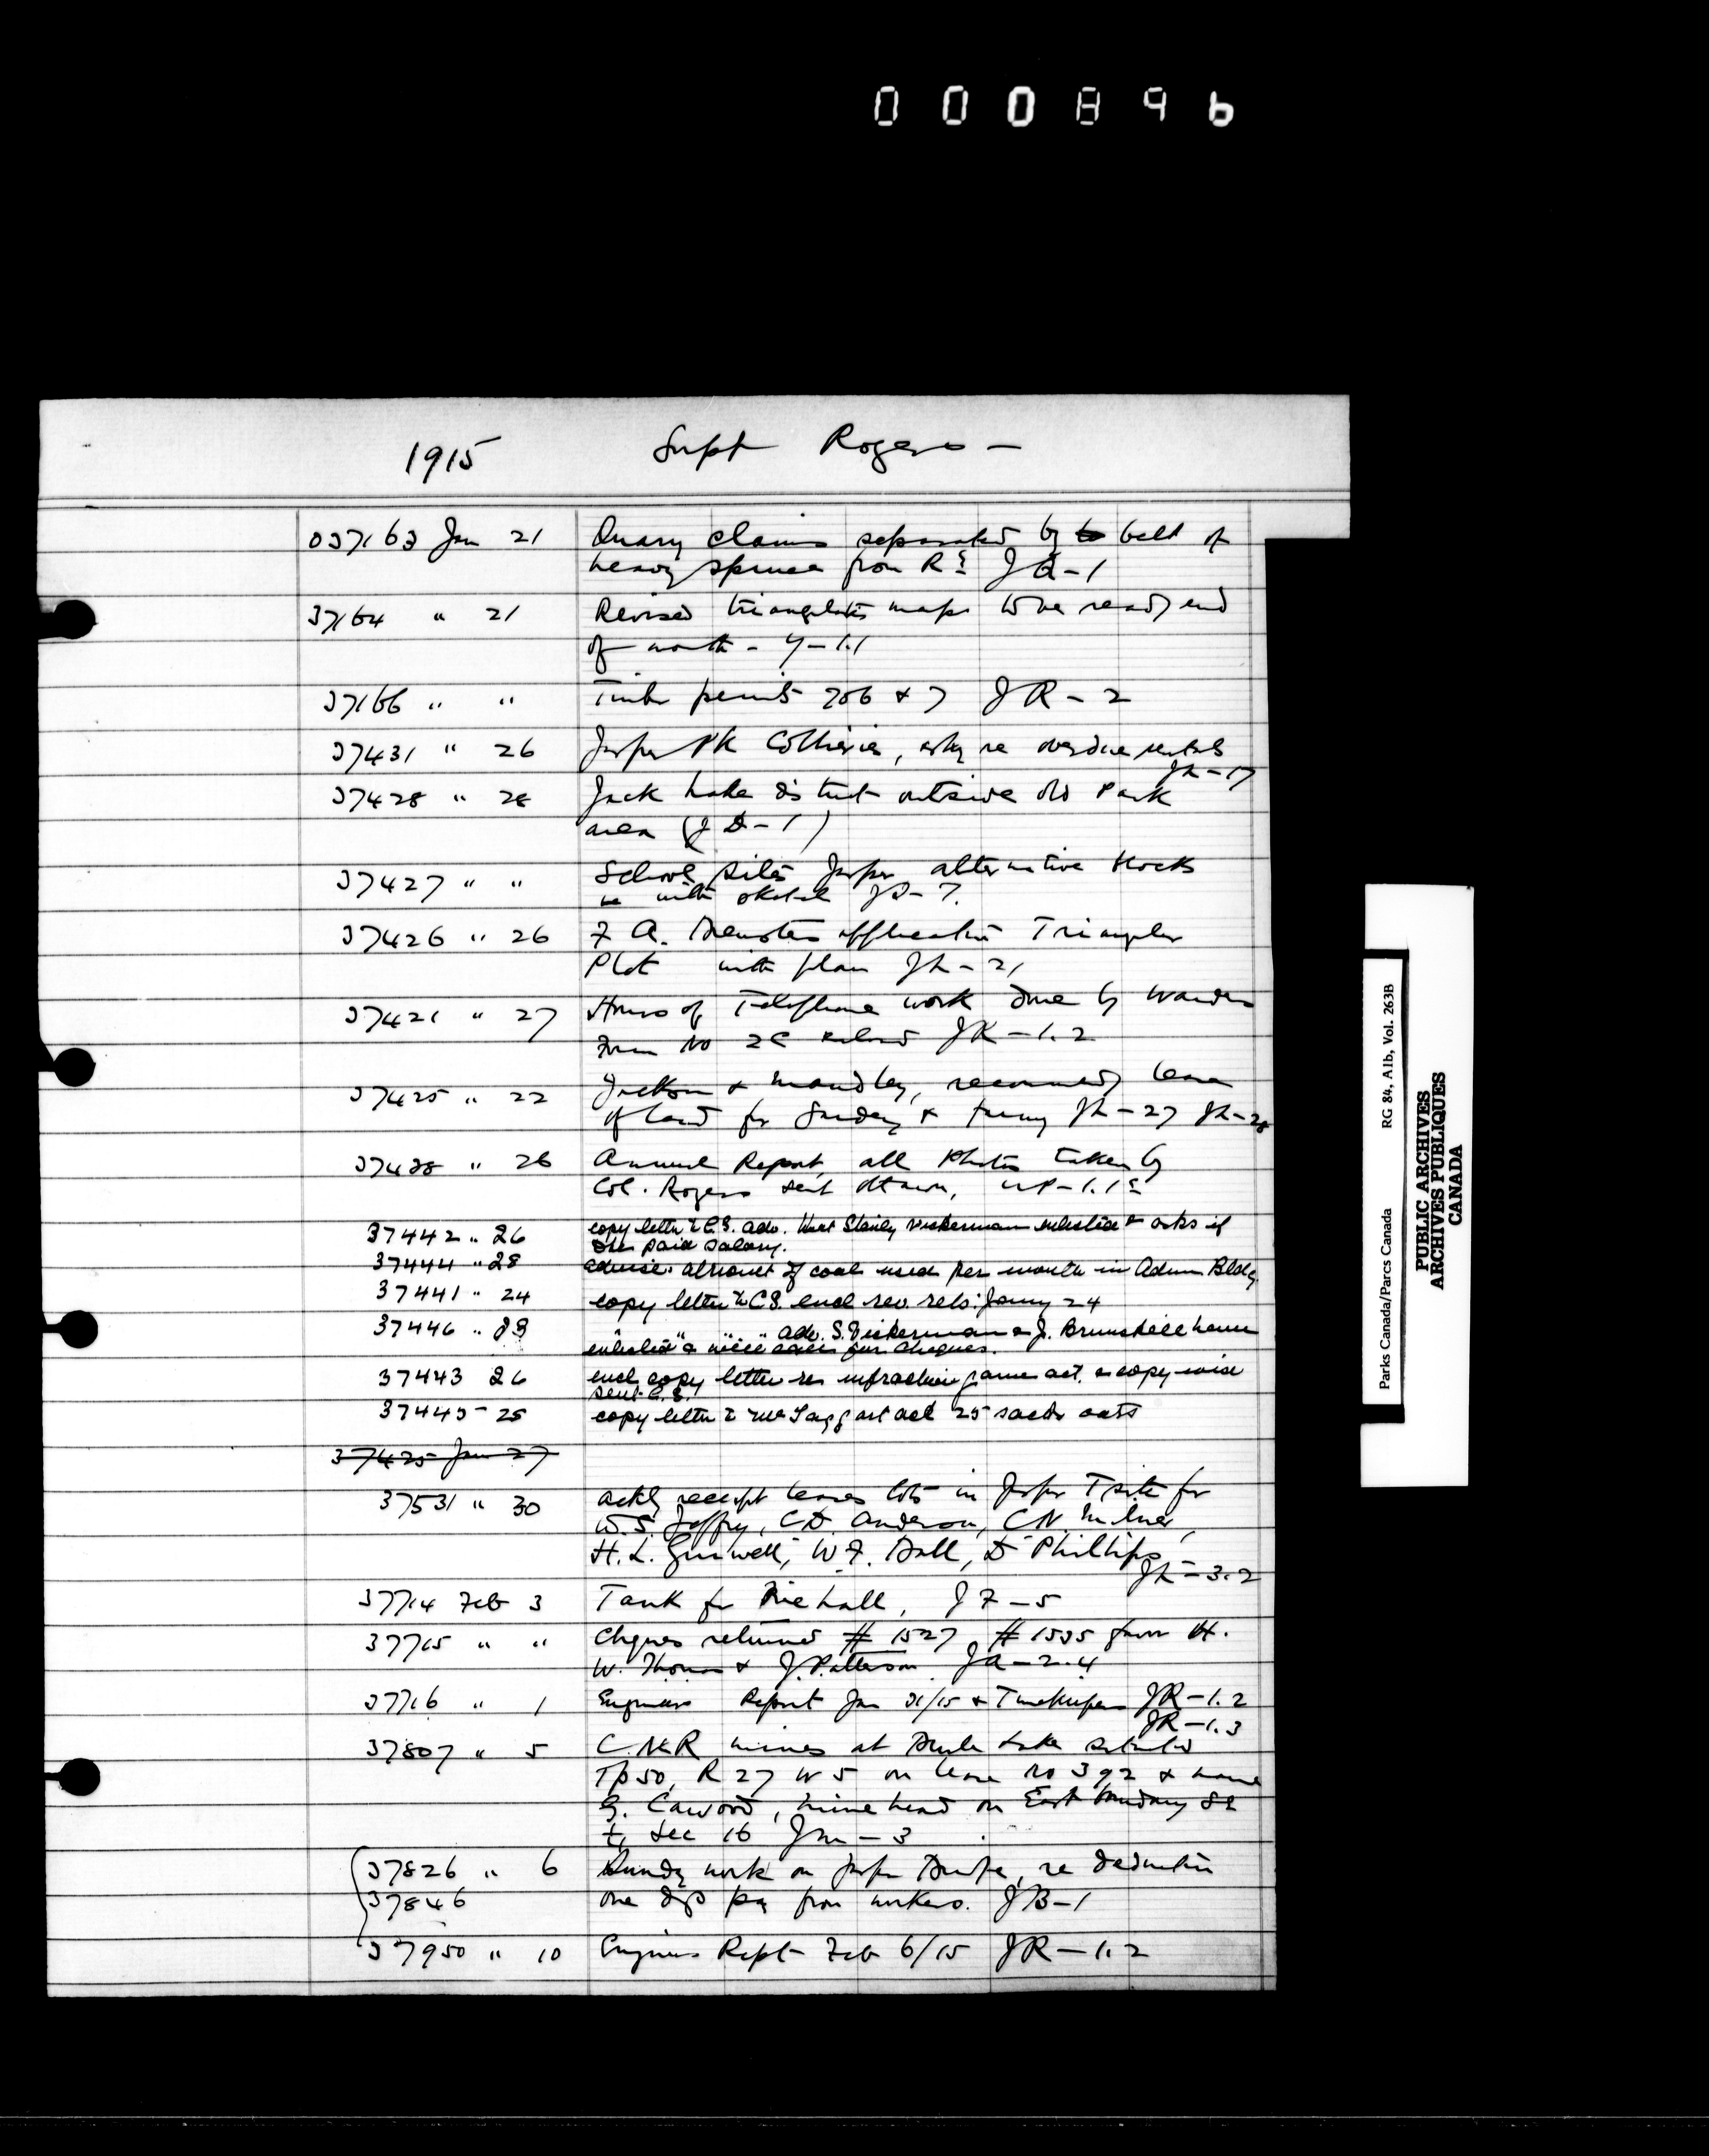 000896
1915 Supt Rogers —
037163 Jan 21 Quarry claims separated by belt of
heavy spruce from R JQ-1
37164 " 21 Revised maps to be ready end
of month - Y-1.1
37166 " " Timber permits 706 & 7 JR-2
37431 " 26 Jasper Pk Collieries, re overdue rentals
JL-17
37428 " 28 Jack Lake district outside old Park
area (JD-1)
37427 " " School sites Jasper alternative blocks
with sketch JS-7.
37426 " 26 F A. application Triangular
Plot with plan JL-21
37421 " 27 Hours of Telephone work done by wardens
Form No JK-1.2
37425 " 22 Jackson & recommends lease
of land for & JL-27 JL-28
37438 " 26 Annual Report, all Photos taken by
Col. Rogers sent Ottawa,
37442 " 26 copy letter to C.S. adv. that Stanley Vickerman enlisted & asks if
paid salary.
37444 " 28 advise amount of coal used per month in Admn Bldg
37441 " 24 copy letter to C.S. encl rev. rets: Jany 24
37446 " " " " " adv. S. Vickerman & J. Brunskill have
enlisted & cheques.
37443 26 encl copy letter re infraction game act. & copy
sent C.S.
37445 25 copy letter to McTaggart 25 sacks oats
37425 Jan 27
37531 " 30 ackg receipt leases lots in Jasper Tsite for
W.S. Jeffry, C.D. Anderson, C.N. Milner,
H.L. W.F. D Phillips
JL-3.2
37714 Feb 3 Tank for Fire hall, JF-5
37715 " " Cheques returned # 1527, # 1535 from H.
W. Thomas & J. Patterson JA-2.4
37716 " 1 Engineers Report Jan 31/15 & Timekeepers JR-1.2
JR-1.3
37807 " 5 C.N.R mines at Lake
JR-1.3
Tp 50, R 27 W 5 on lease No 392 & name
G. Cawood, mine head on East boundary
Sec 16 JM-3
37826 " 6 Sunday work on Jasper re deduction
37846 one days pay from workers. JB-1
37950 " 10 Engineers Rept Feb 6/15 JR-1.2
Parks Canada/Parcs Canada RG 84, A1b, Vol. 263B
PUBLIC ARCHIVES
ARCHIVES PUBLIQUES
CANADA